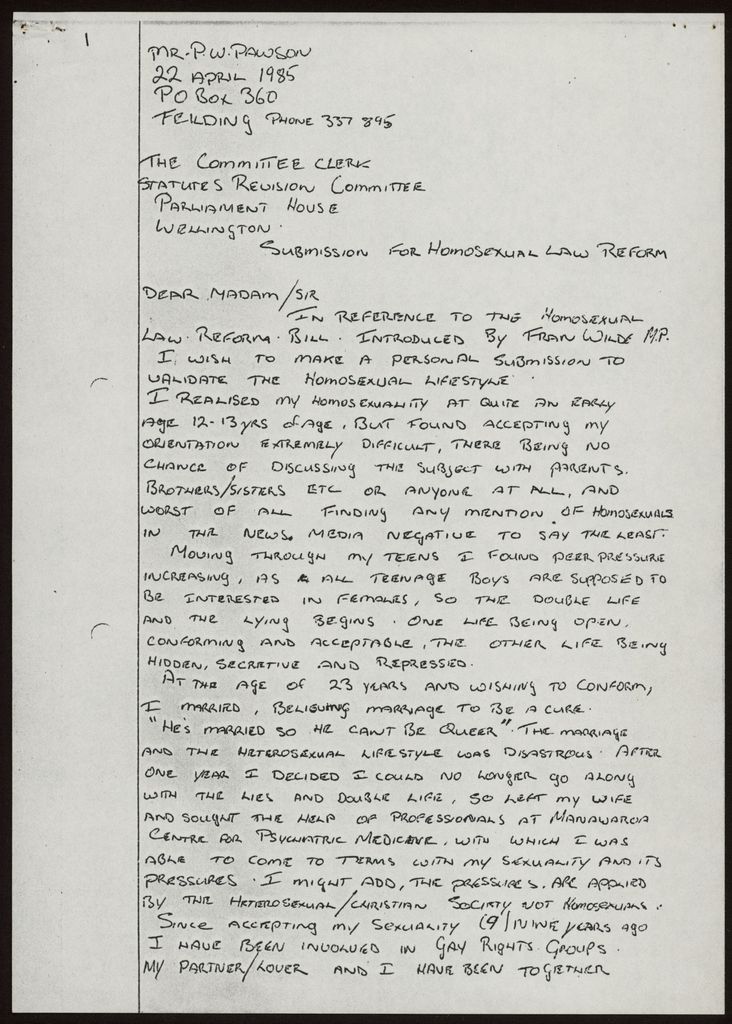 1
MR. P.W. PAWSON
22 APRIL 1985
PO BOX 360
FEILDING PHONE 337 895
THE COMMITTEE CLERK
STATUTES REVISION COMMITTEE
PARLIAMENT HOUSE
WELLINGTON.
SUBMISSION FOR HOMOSEXUAL LAW REFORM
DEAR MADAM/SIR
IN REFERENCE TO THE HOMOSEXUAL
LAW REFORM BILL. INTRODUCED BY FRAN WILDE M.P.
I WISH TO MAKE A PERSONAL SUBMISSION TO
VALIDATE THE HOMOSEXUAL LIFESTYLE.
I REALISED MY HOMOSEXUALITY AT QUITE AN EARLY
AGE 12-13 YRS of AGE, BUT FOUND ACCEPTING MY
ORIENTATION EXTREMELY DIFFICULT, THERE BEING NO
CHANCE OF DISCUSSING THE SUBJECT WITH PARENTS,
BROTHERS/SISTERS ETC OR ANYONE AT ALL, AND
WORST OF ALL FINDING ANY MENTION OF HOMOSEXUALS
IN THE NEWS MEDIA NEGATIVE TO SAY THE LEAST.
MOVING THROUGH MY TEENS I FOUND PEER PRESSURE
INCREASING, AS ALL TEENAGE BOYS ARE SUPPOSED TO
BE INTERESTED IN FEMALES, SO THE DOUBLE LIFE
AND THE LYING BEGINS. ONE LIFE BEING OPEN,
CONFORMING AND ACCEPTABLE, THE OTHER LIFE BEING
HIDDEN, SECRETIVE AND REPRESSED.
AT THE AGE OF 23 YEARS AND WISHING TO CONFORM,
I MARRIED, BELIEVING MARRIAGE TO BE A CURE.
"HE'S MARRIED SO HE CAN'T BE QUEER". THE MARRIAGE
AND THE HETEROSEXUAL LIFESTYLE WAS DISASTROUS. AFTER
ONE YEAR I DECIDED I COULD NO LONGER GO ALONG
WITH THE LIES AND DOUBLE LIFE, SO LEFT MY WIFE
AND SOUGHT THE HELP OF PROFESSIONALS AT MANAWAROA
CENTRE FOR PSYCHIATRIC MEDICINE, WITH WHICH I WAS
ABLE TO COME TO TERMS WITH MY SEXUALITY AND ITS
PRESSURES. I MIGHT ADD, THE PRESSURES ARE APPLIED
BY THE HETEROSEXUAL/CHRISTIAN SOCIETY NOT HOMOSEXUALS.
SINCE ACCEPTING MY SEXUALITY (9) NINE YEARS AGO
I HAVE BEEN INVOLVED IN GAY RIGHTS GROUPS.
MY PARTNER/LOVER AND I HAVE BEEN TOGETHER